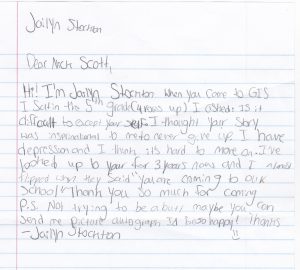 Jailyn Stockton
Dear Nick Scott,
Hi! I'm Jailyn Stockton when you come to GIS
I sat in the 5th grade (4 rows up) I asked: Is it
difficult to except your self. I thought your story
was inspirational to me to never give up. I have
depression and I think its hard to move on. I've
looked up to your for 3 years now and I almost
flipped when they said "you are coming to our
school" Thank you so much for coming
P.S. Not trying to be a butt maybe you can
send me picture autograph Id be so happy! Thanks
-Jailyn Stockton